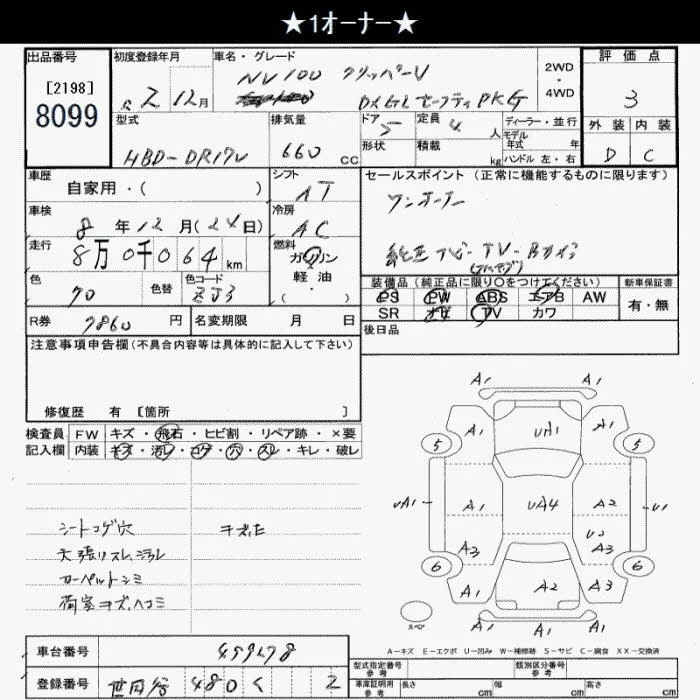 ★1オーナー★
出品番号
[2198]
8099
初度登録年月
2 12月
車名・グレード
NV100 クリッパーV
DX GL セーフティPKG
2WD
・
4WD
評価点
3
外装 内装
D C
型式
HBD-DR17V
排気量
660 cc
ドア 5
形状
定員 4 人
積載 kg
ディーラー・並行
モデル
年式 年
ハンドル 左・右
車歴
自家用・( )
シフト
AT
セールスポイント(正常に機能するものに限ります)
ワンオーナー
純正ナビ・TV・Bカメラ
車検
8 年 12 月(24日)
冷房
AC
走行
8万0千064 km
燃料
ガソリン
軽・油
( )
色
色替
色コード
ZJ3
装備品(純正品に限り○をつけてください)
PS PW ABS エアB AW
SR ナビ TV カワ
新車保証書
有・無
R券
7860 円
名変期限 月 日
後日品
注意事項申告欄(不具合内容等は具体的に記入して下さい)
修復歴 有 [箇所 ]
検査員
記入欄
FW キズ・飛石・ヒビ割・リペア跡・×要
内装 キズ・汚レ・コゲ・穴・スレ・キレ・破レ
シートコゲ穴
天張リスレ、汚レ
カーペットシミ
荷室キズ、ヘコミ
A1 A1
A1 UA1 A1
5 5
UA1 A1 UA4 A2 U1
A3 A3
6 6
A1 A2 A3
A1 A1
スペア
A-キズ E-エクボ U-凹み W-補修跡 S-サビ C-腐食 XX-交換済
車台番号
登録番号
世田谷 480 く 2
型式指定番号
参考
類別区分番号
参考
車庫証明用
参考
長さ cm
幅 cm
高さ cm